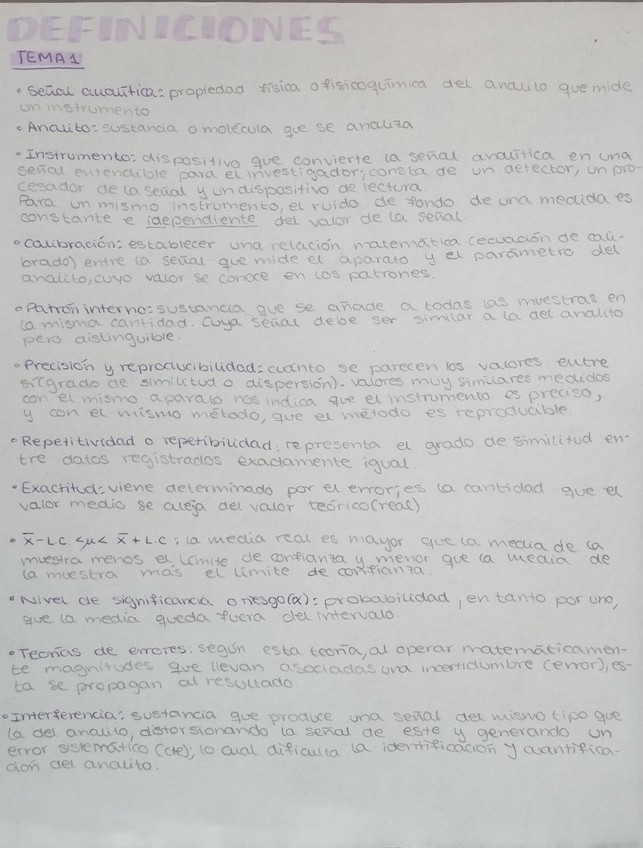 DEFINICIONES
TEMA 1
• Señal analítica: propiedad física o fisicoquímica del analito que mide
un instrumento
• Analito: sustancia o molécula que se analiza
• Instrumento: dispositivo que convierte la señal analítica en una
señal entendible para el investigador; consta de un detector, un pro-
cesador de la señal y un dispositivo de lectura
Para un mismo instrumento, el ruido de fondo de una medida es
constante e independiente del valor de la señal.
• Calibración: establecer una relación matemática (ecuación de cali-
brado) entre la señal que mide el aparato y el parámetro del
analito, cuyo valor se conoce en los patrones.
• Patrón interno: sustancia que se añade a todas las muestras en
la misma cantidad. Cuya señal debe ser similar a la del analito
pero distinguible.
• Precisión y reproducibilidad: cuánto se parecen los valores entre
sí (grado de similitud o dispersión). Valores muy similares medidos
con el mismo aparato nos indica que el instrumento es preciso,
y con el mismo método, que el método es reproducible.
• Repetitividad o repetibilidad: representa el grado de similitud en-
tre datos registrados exactamente igual.
• Exactitud: viene determinado por el error; es la cantidad que el
valor medio se aleja del valor teórico (real)
• x̄ - L.C. < μ < x̄ + L.C: la media real es mayor que la media de la
muestra menos el límite de confianza y menor que la media de
la muestra más el límite de confianza.
• Nivel de significancia o riesgo (α): probabilidad, en tanto por uno,
que la media queda fuera del intervalo.
• Teorías de errores: según esta teoría, al operar matemáticamen-
te magnitudes que llevan asociadas una incertidumbre (error), es-
ta se propagan al resultado
• Interferencia: sustancia que produce una señal del mismo tipo que
la del analito, distorsionando la señal de este y generando un
error sistemático (cte), lo cual dificulta la identificación y cuantifica-
ción del analito.